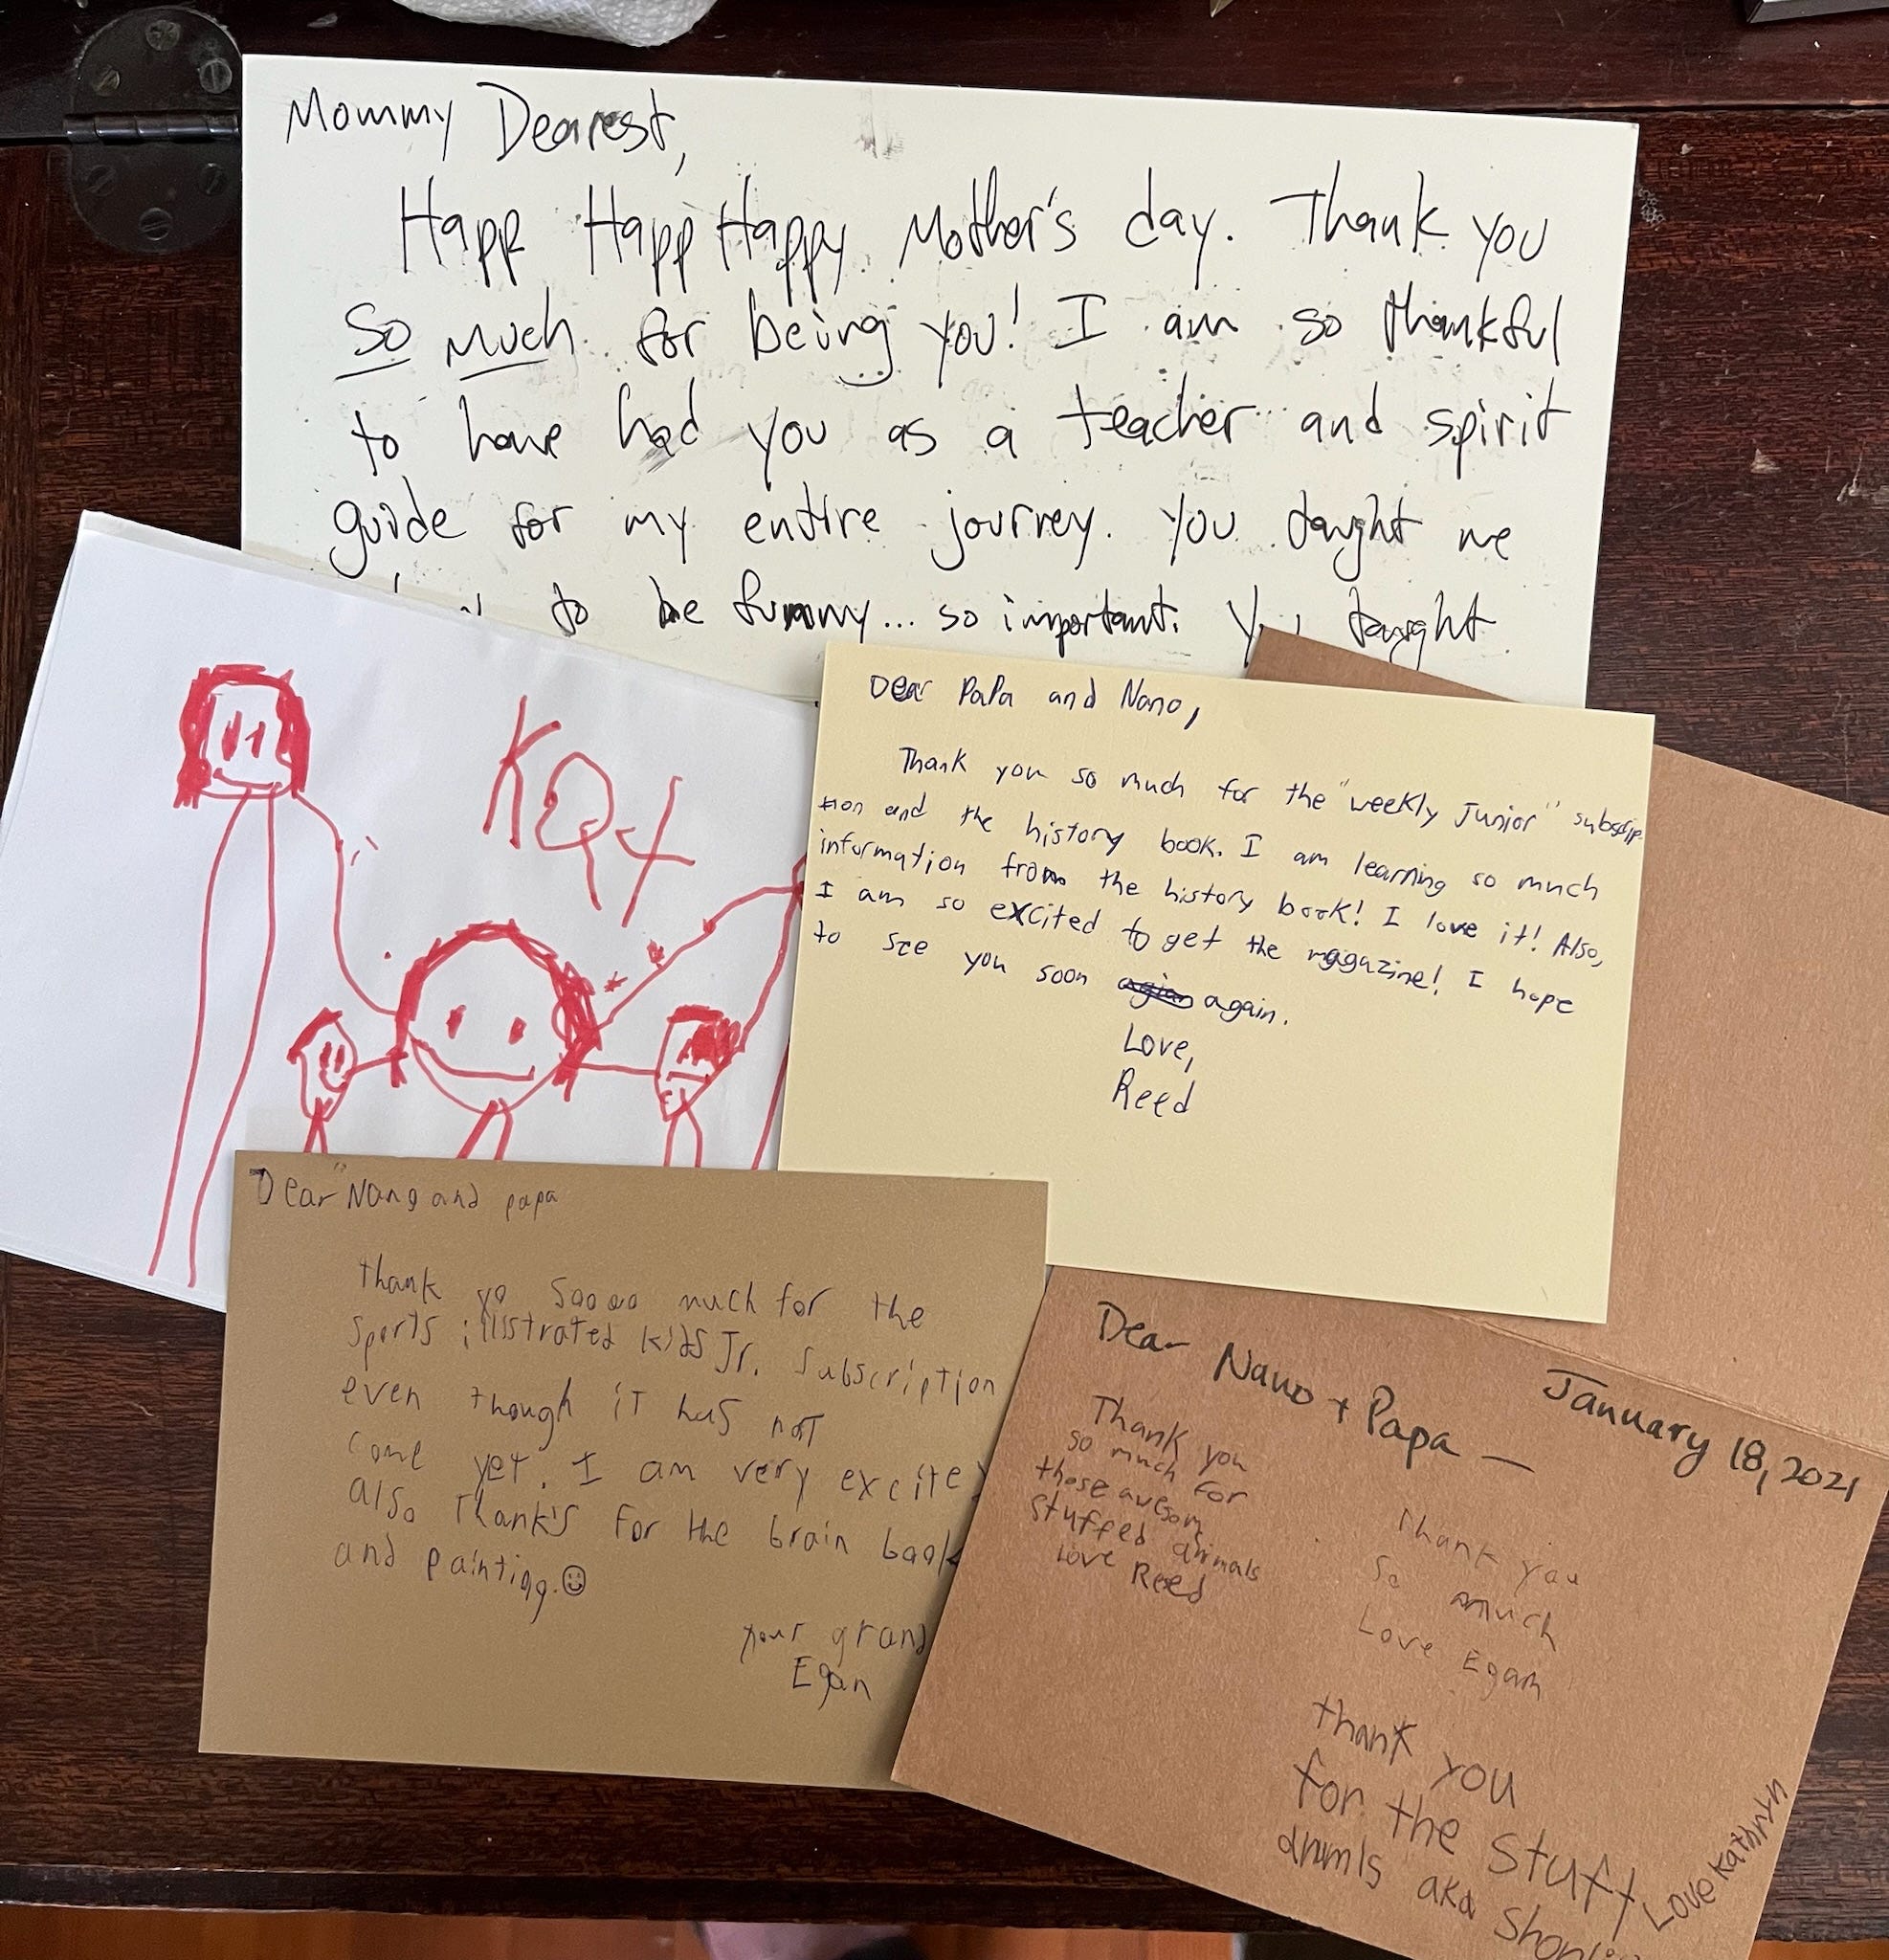 Mommy Dearest,
Happ Happ Happy Mother's day. Thank you
So much for being you! I am so thankful
to have had you as a teacher and spirit
guide for my entire journey. You taught me
to be funny... so important. You taught
KQX
Dear PaPa and Nano,
Thank you so much for the "weekly Junior" subscrip-
tion and the history book. I am learning so much
information from the history book! I love it! Also,
I am so excited to get the magazine! I hope
to see you soon again.
Love,
Reed
Dear Nano and papa
thank yo sooooo much for the
sports illistrated kids Jr. subscription
even though it has not
come yet. I am very excited
also thank's for the brain book
and painting.☺
your grand
Egan
Dear Nano + Papa — January 18, 2021
Thank you
so much for
those awesom
stuffed animals
Love Reed
Thank you
So much
Love Egan
thank you
for the stuft
anmls aka
Love Kathryn